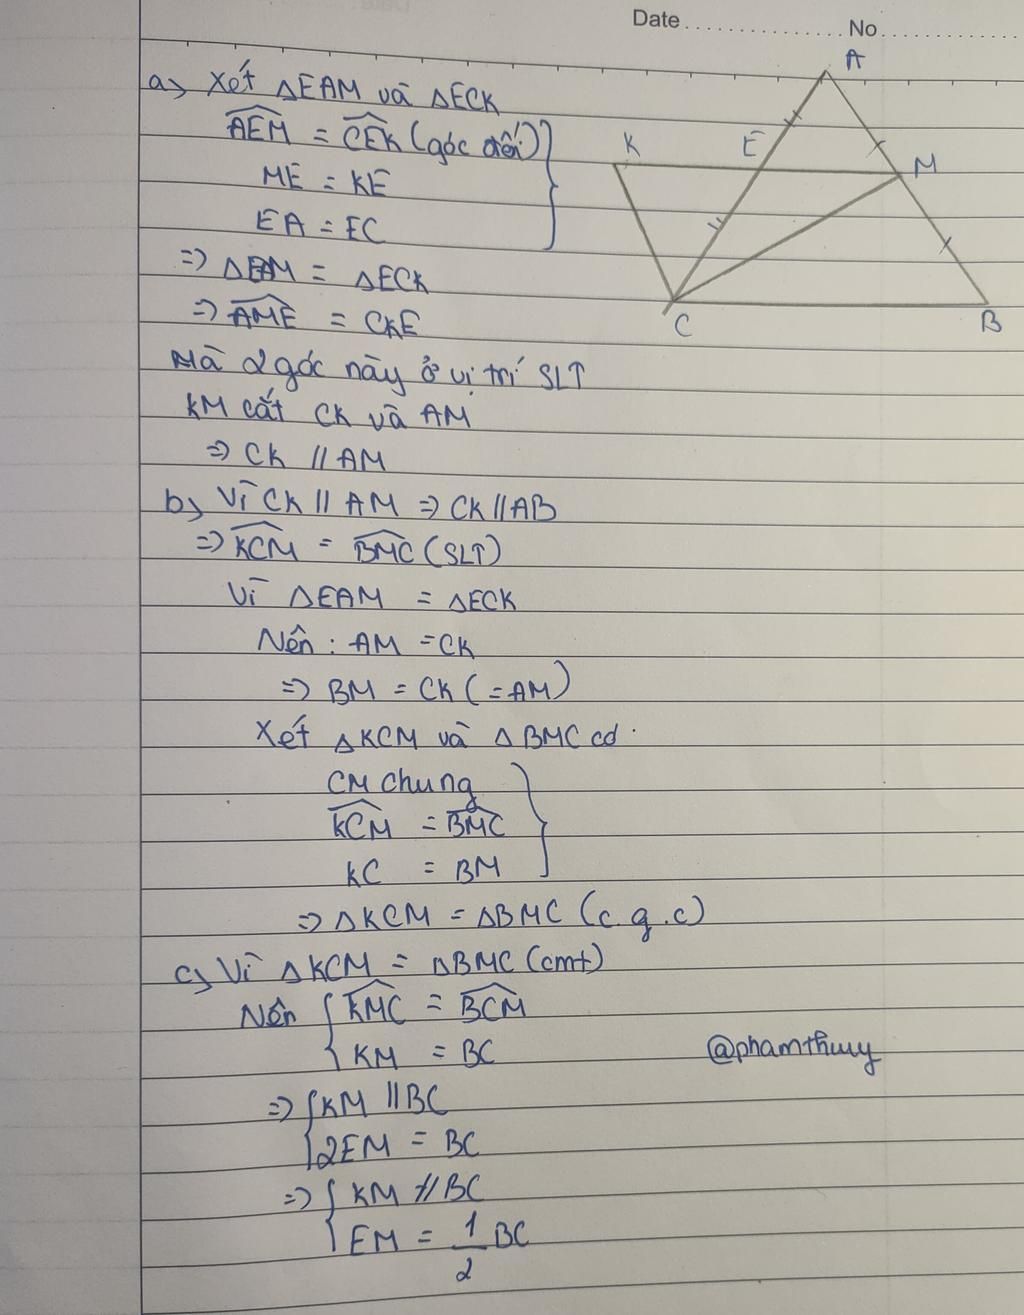 Date.................No.................
a) Xét ΔEAM và ΔECK
AEM = CEK (góc đối)
ME = KE
EA = EC
=> ΔEAM = ΔECK
=> AME = CKE
Mà 2 góc này ở vị trí SLT
KM cắt CK và AM
=> CK // AM
b) Vì CK // AM => CK // AB
=> KCM = BMC (SLT)
Vì ΔEAM = ΔECK
Nên : AM = CK
=> BM = CK (= AM)
Xét ΔKCM và ΔBMC có
CM chung
KCM = BMC
KC = BM
=> ΔKCM = ΔBMC (c.g.c)
c) Vì ΔKCM = ΔBMC (cmt)
Nên { KMC = BCM
KM = BC
@phamthuy
=> { KM // BC
2EM = BC
=> { KM // BC
EM = 1/2 BC
A
K
E
M
C
B